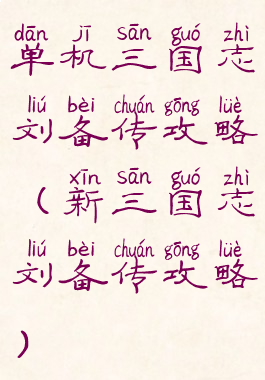 dān jī sān guó zhì
单机三国志
liú bèi chuán gōng lüè
刘备传攻略
xīn sān guó zhì
(新三国志
liú bèi chuán gōng lüè
刘备传攻略
)